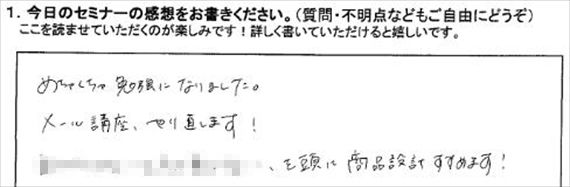 1. 今日のセミナーの感想をお書きください。(質問・不明点などもご自由にどうぞ)
ここを読ませていただくのが楽しみです!詳しく書いていただけると嬉しいです。
めちゃくちゃ勉強になりました。
メール講座、やり直します!
、を頭に商品設計すすめます!